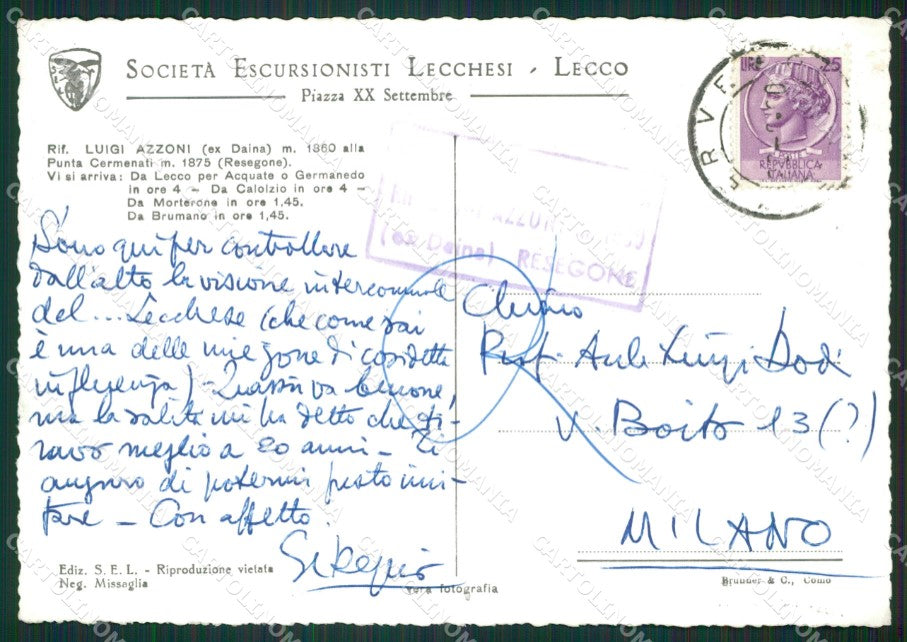 SOCIETÀ ESCURSIONISTI LECCHESI - LECCO
Piazza XX Settembre
Rif. LUIGI AZZONI (ex Daina) m. 1860 alla
Punta Cermenati m. 1875 (Resegone).
Vi si arriva: Da Lecco per Acquate o Germanedo
in ore 4 - Da Calolzio in ore 4 -
Da Morterone in ore 1,45.
Da Brumano in ore 1,45.
Sono qui per controllare
dall'alto la visione intercomunale
del ... Lecchese (che come sai
è una delle mie zone di cosidetta
influenza) - Quassù va benone,
ma la salita mi ha detto che ti-
ravo meglio a 20 anni - Ti
auguro di potermi presto imi-
tare - Con affetto.
Ediz. S. E. L. - Riproduzione vietata
Neg. Missaglia
vera fotografia
LIRE 25
REPVBBLICA
ITALIANA
AZZONI
(ex Daina) RESEGONE
Chiмo
Prof. Luigi Dodi
V. Boito 13 (?)
MILANO
Brunner & C., Como
CARTOLINOMANIA